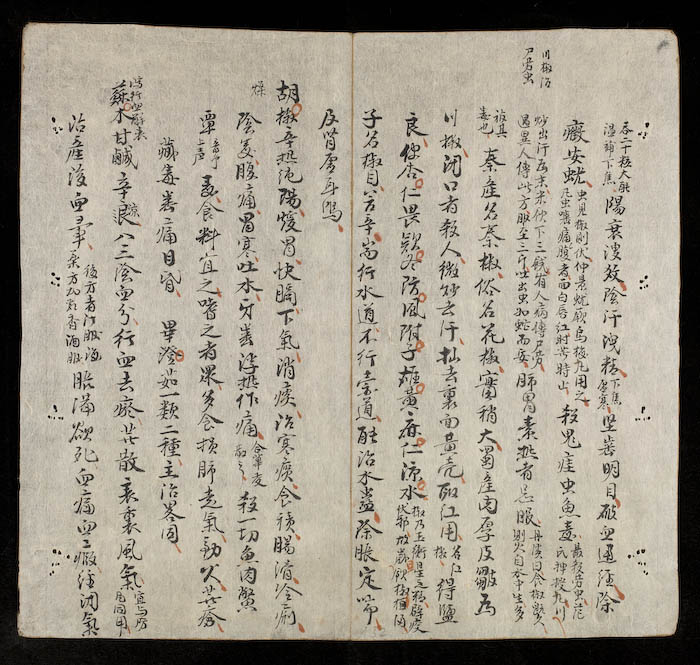 吞二十粒大能溫補下焦 陽衰溲數陰汗洩精 下焦虛寒 堅齒明目破血通經除
癥安蚘 虫見椒則伏仲景蚘厥烏梅丸用之凡虫嚙痛腹者面白唇紅時苦時止 殺鬼疰虫魚毒 最殺勞虫危氏神授丸川
川椒 尸勞虫
炒出汗為末米飲下三錢有人病傳尸勞遇異人傳此方服至三斤吐出虫如蛇而安 肺胃素熱者忌服 丹溪曰食椒歲久則火自水中生多
被其毒也 秦產名秦椒俗名花椒實稍大蜀產肉厚皮皺為
川椒閉口者殺人微炒去汗搗去裏面黃壳取紅用 名椒紅 得鹽
良使杏仁畏欵冬防風附子雄黃麻仁涼水 椒乃玉衡星之精辟疫伏邪故歲飲椒柏酒
子名椒目苦辛耑行水道不行穀道能治水蠱除脹定喘
及腎虛耳鳴
燥 胡椒辛熱純陽煖胃快膈下氣消痰治寒痰食積腸滑冷痢
陰毒腹痛胃寒吐水牙齒浮熱作痛 合蓽茇散之 殺一切魚肉鱉
蕈 音尋上声 毒食料宜之嗜之者眾多食損肺走氣動火發瘡
臟毒齒痛目昏 畢澄茄一類二種主治畧同
行血解表 蘇木甘鹹辛涼入三陰血分行血去瘀發散表裏風氣 宜與防風同用
治產後血暈 脹滿欲死血痛血瘕經閉氣